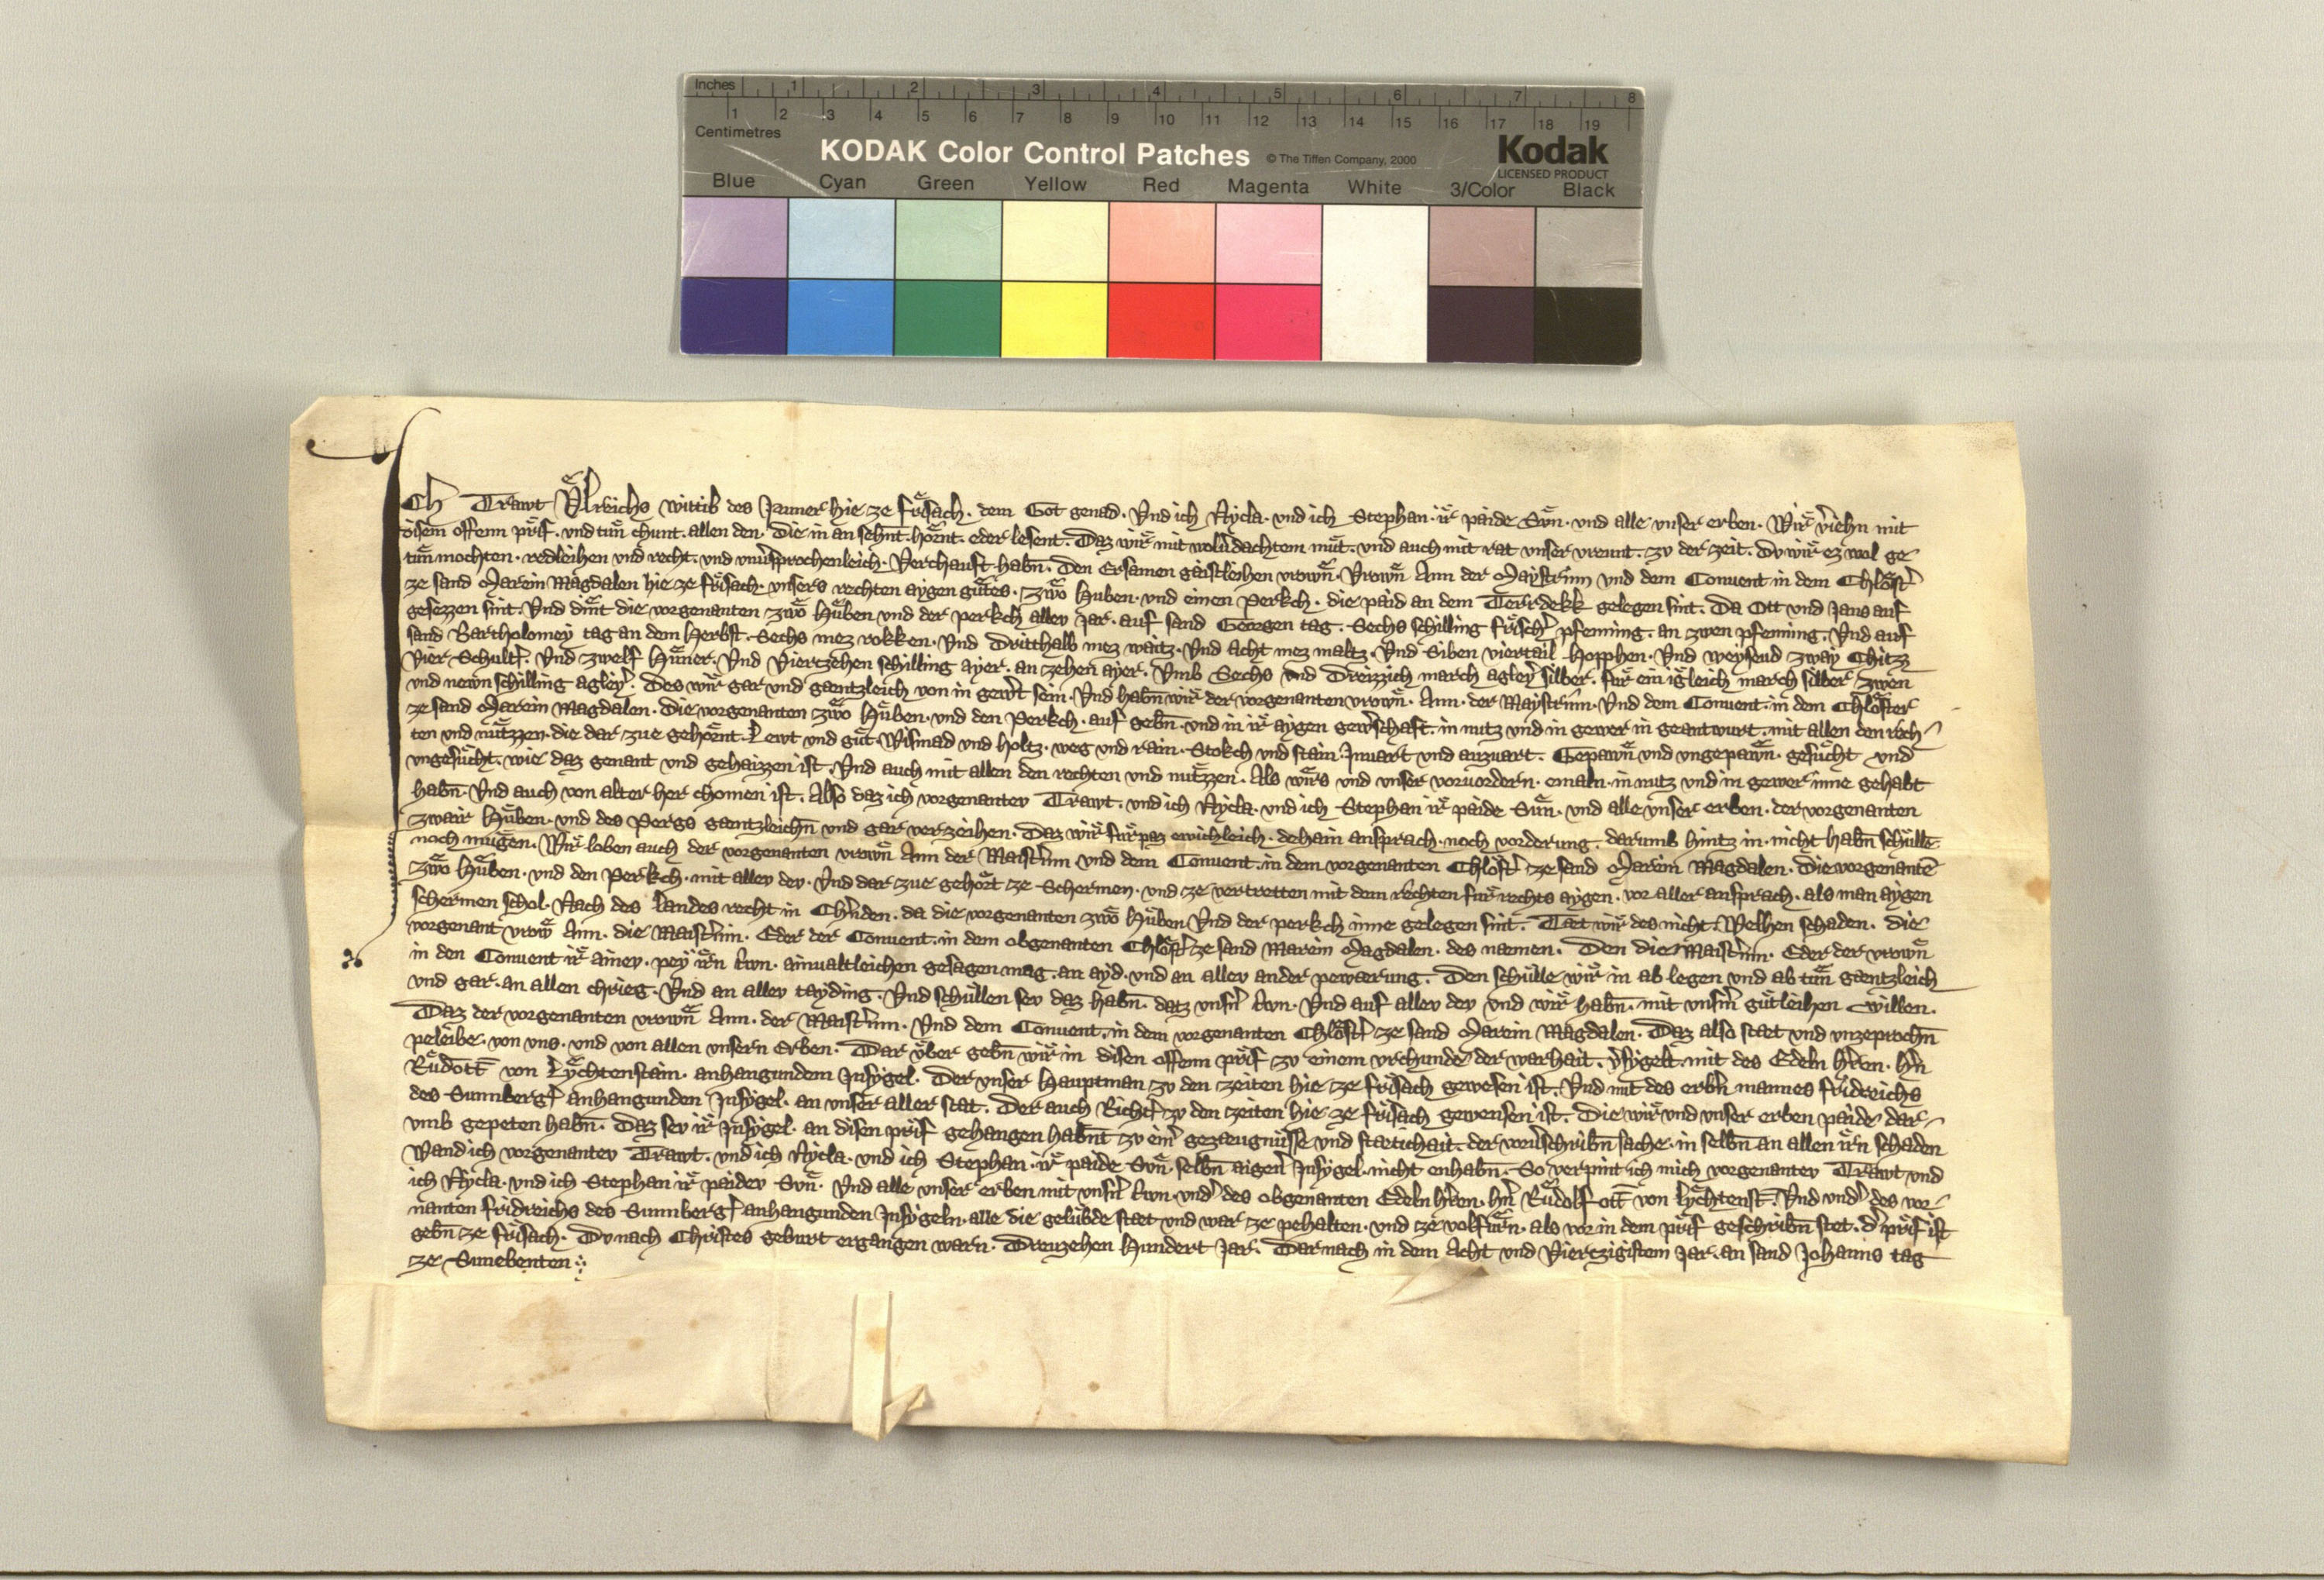 Inches 1 2 3 4 5 6 7 8
1 2 3 4 5 6 7 8 9 10 11 12 13 14 15 16 17 18 19
Centimetres
KODAK Color Control Patches © The Tiffen Company, 2000 Kodak
LICENSED PRODUCT
Blue Cyan Green Yellow Red Magenta White 3/Color Black
Ich Trawt Vͤlreichs wittib des Janner hie ze friͤsach. dem Got genad. Vnd ich Nycla. vnd ich Stephan. ir paide Suͤn. vnd alle vnser erben. Wir v̓iehn mit
disem offenn priͤf. vnd tuͤn chunt. allen den. die in an sehnt. hoͤrnt. eder lesent. Daz wir mit wolv̓dachtem muͤt. vnd auch mit rat vnser vreunt. zv der zeit. Dv wir ez wol ge
tuͤn mochten. redleihen vnd recht. vnd vnv̓sprochenleich. Verchauft habn̄. Den Ersamen gaistleihen vrowͤn. Vrowͤn Ann der Maystr̓inn vnd dem Conuent in dem Chloͤst̓
ze sand Marein Magdalen hie ze friͤsach. vnsers rechten aygen guͤtes. zwoͤ Huben. vnd einen Perkch. die paid an dem Terrdekk gelegen sint. Da Ott vnd Jans auf
gesezzen sint. Vnd dint die vorgenanten zwoͤ Huͤben vnd der perkch allev Jar. auf sand Georgen tag. Sechs schilling friͤsch̓ pfenning. an zwen pfenning. Vnd auf
sand Bartholomey tag an dem Herbst. Sechs mez rokken. Vnd Dritthalb mez waitz. Vnd acht mez maltz. Vnd Siben viertail Hopphen. Vnd weysend zway Chitz
Vier Schult̓. Vnd zwelf Huͤner. Vnd Viertzehen schilling ayer. an zehen ayer. Vmb Sechs vnd Dreizzich march agley̓ silber. fuͤr ein igleich march silber zwen
vnd newn schilling agley̓. Des wir gar vnd gaentzleich von in gew̓t sein. Vnd habn̄ wir der vorgenanten vrowͤn. Ann. der Maystr̓inn. Vnd dem Conuent. in dem Chloͤster
ze sand Marein Magdalen. die vorgenanten zwoͤ Huͤben. vnd den Perkch. auf gebn̄. vnd in ir aygen gew̓schaft. in nutz vnd in gewer in geantwurt. mit allen den rech
ten vnd nuͤtzzen. die dar zue gehoͤrnt. Lewt vnd guͤt. Wismad vnd holtz. weg vnd rain. Stokch vnd stain. Jnuart vnd auzuart. Gepawͤn vnd vngepawͤn. gesuͤcht vnd
vngesuͤcht. wie daz genant vnd gehaizzen ist. Vnd auch mit allen den rechten vnd nuͤtzzen. Als wirs vnd vnser voruordern. emaln. in nutz vnd in gewer inne gehabt
habn̄. Vnd auch von alter her chomen ist. Also daz ich vorgenantev Trawt. vnd ich Nycla. vnd ich Stephan ir paide Suͤn. vnd alle vnser erben. der vorgenanten
zwair Huͤben. vnd des Pergs gaentzleichn̄ vnd gar verzeihen. Daz wir fuͤrpaz ewichleich. dehain ansprach. noch vorderung. darumb hintz in. nicht habn̄ schuͤllē
noch muͤgen. Wir loben auch der vorgenanten vrowͤn Ann der Maistr̓inn vnd dem Conuent. in dem vorgenanten Chloͤst̓ ze sand Marein Magdalen. die vorgenantē
zwoͤ Huͤben. vnd den Perkch. mit allev dev. Vnd dar zue gehoͤrt ze Schermen. vnd ze vertretten mit dem rechten fuͤr rechts aygen. vor aller ansprach. als man aygen
schermen schol. Nach des Landes recht in Ch̓nden. da die vorgenanten zwoͤ Huͤben Vnd der perkch inne gelegen sint. Taet wir des nicht. Welhen schaden. die
vorgenant vrowͤ Ann. die Maistr̓inn. Eder der Conuent. in dem obgenanten Chloͤst̓ ze sand Marein Magdalen. des naemen. Den die Maistr̓inn. Eder der vrowͤn
in den Conuent ir ainev. pey irn trwn. ainualtleichen gesagen mag. an ayd. vnd an allev ander pewaerung. Den schuͤlle wir in ab legen vnd ab tuͤn gaentzleich
vnd gar. an allen chrieg. Vnd an allev tayding. Vnd schuͤllen sev daz habn̄. datz vnsn̓ trwn. Vnd auf allev dev vnd wir habn̄. mit vnsm̓ guͤtleihen willen.
Daz der vorgenanten vrowͤn Ann. der Maistr̓inn. Vnd dem Conuent. in dem vorgenanten Chloͤst̓ ze sand Marein Magdalen. Daz also staet vnd vnzeprochn̄
peleibe. von vns. vnd von allen vnsern Erben. Dar vͤber gebn̄ wir in disen offenn priͤf zv einem vrchunde der warhait. v̓sygelt. mit des Edeln H̓ren. H̓n
Ruͤdott̄ von Lyͤchtenstain. anhangundem Jnsygel. Der vnser Hauptman zv den zeiten hie ze friͤsach gewesen ist. Vnd mit des erb̓n mannes fridreichs
des Sunnberg̓ anhangunden Jnsygel. an vnser aller stat. Der auch Richt̓ zv den zeiten hie ze friͤsach gewensen ist. Die wir vnd vnser erben paide dar
vmb gepeten habn̄. Daz sev ir Jnsygel. an disen priͤf gehangen habn̄t zv eim̓ gezaeugnuͤsse vnd staetichait. der vorv̓schribn̄ sache. in selbn̄ an allen irn schaden
Wand ich vorgenantev Trawt. vnd ich Nycla. vnd ich Stephan. ir paide Suͤn. selbn̄ aigen̓ Jnsygel. nicht enhabn̄. So verpint ich mich vorgenantev Trawt vnd
ich Nycla. vnd ich Stephan ir paidev Suͤn. Vnd alle vnser erben mit vnsn̓ trwn. vnd̓ des obgenanten Edeln H̓ren. H̓n Ruͤdolf ott̄ von Lyͤchtenst̄. Vnd vnd̓ des vor
nanten fridreichs des Sunnberg̓ anhangunden Jnsygeln. alle die geluͤbde staet vnd war ze pehalten. vnd ze volfuͤrn. als vor in dem priͤf geschribn̄ stet. d̓ priͤf ist
gebn̄ ze friͤsach. Dv nach Christes geburt ergangen warn. Dreuzehen Hundert Jar. Dar nach in dem Acht vnd Viertzigistem Jar. an sand Johanns tag
ze Sunebenten